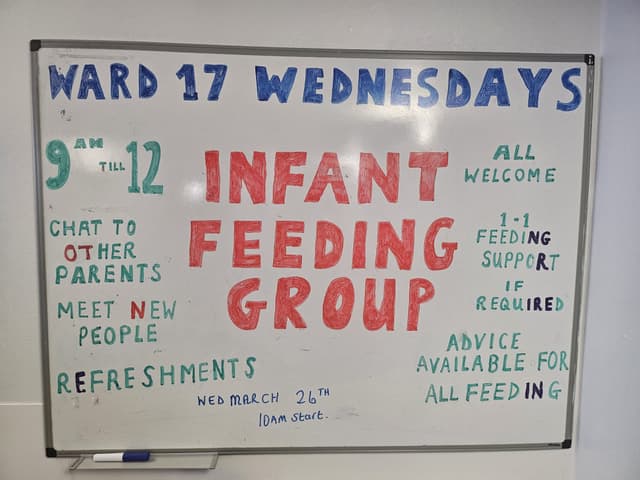 WARD 17 WEDNESDAYS
9 AM TILL 12
INFANT
FEEDING
GROUP
CHAT TO
OTHER
PARENTS
MEET NEW
PEOPLE
REFRESHMENTS
ALL
WELCOME
1-1
FEEDING
SUPPORT
IF
REQUIRED
ADVICE
AVAILABLE FOR
ALL FEEDING
WED MARCH 26TH
10AM Start.